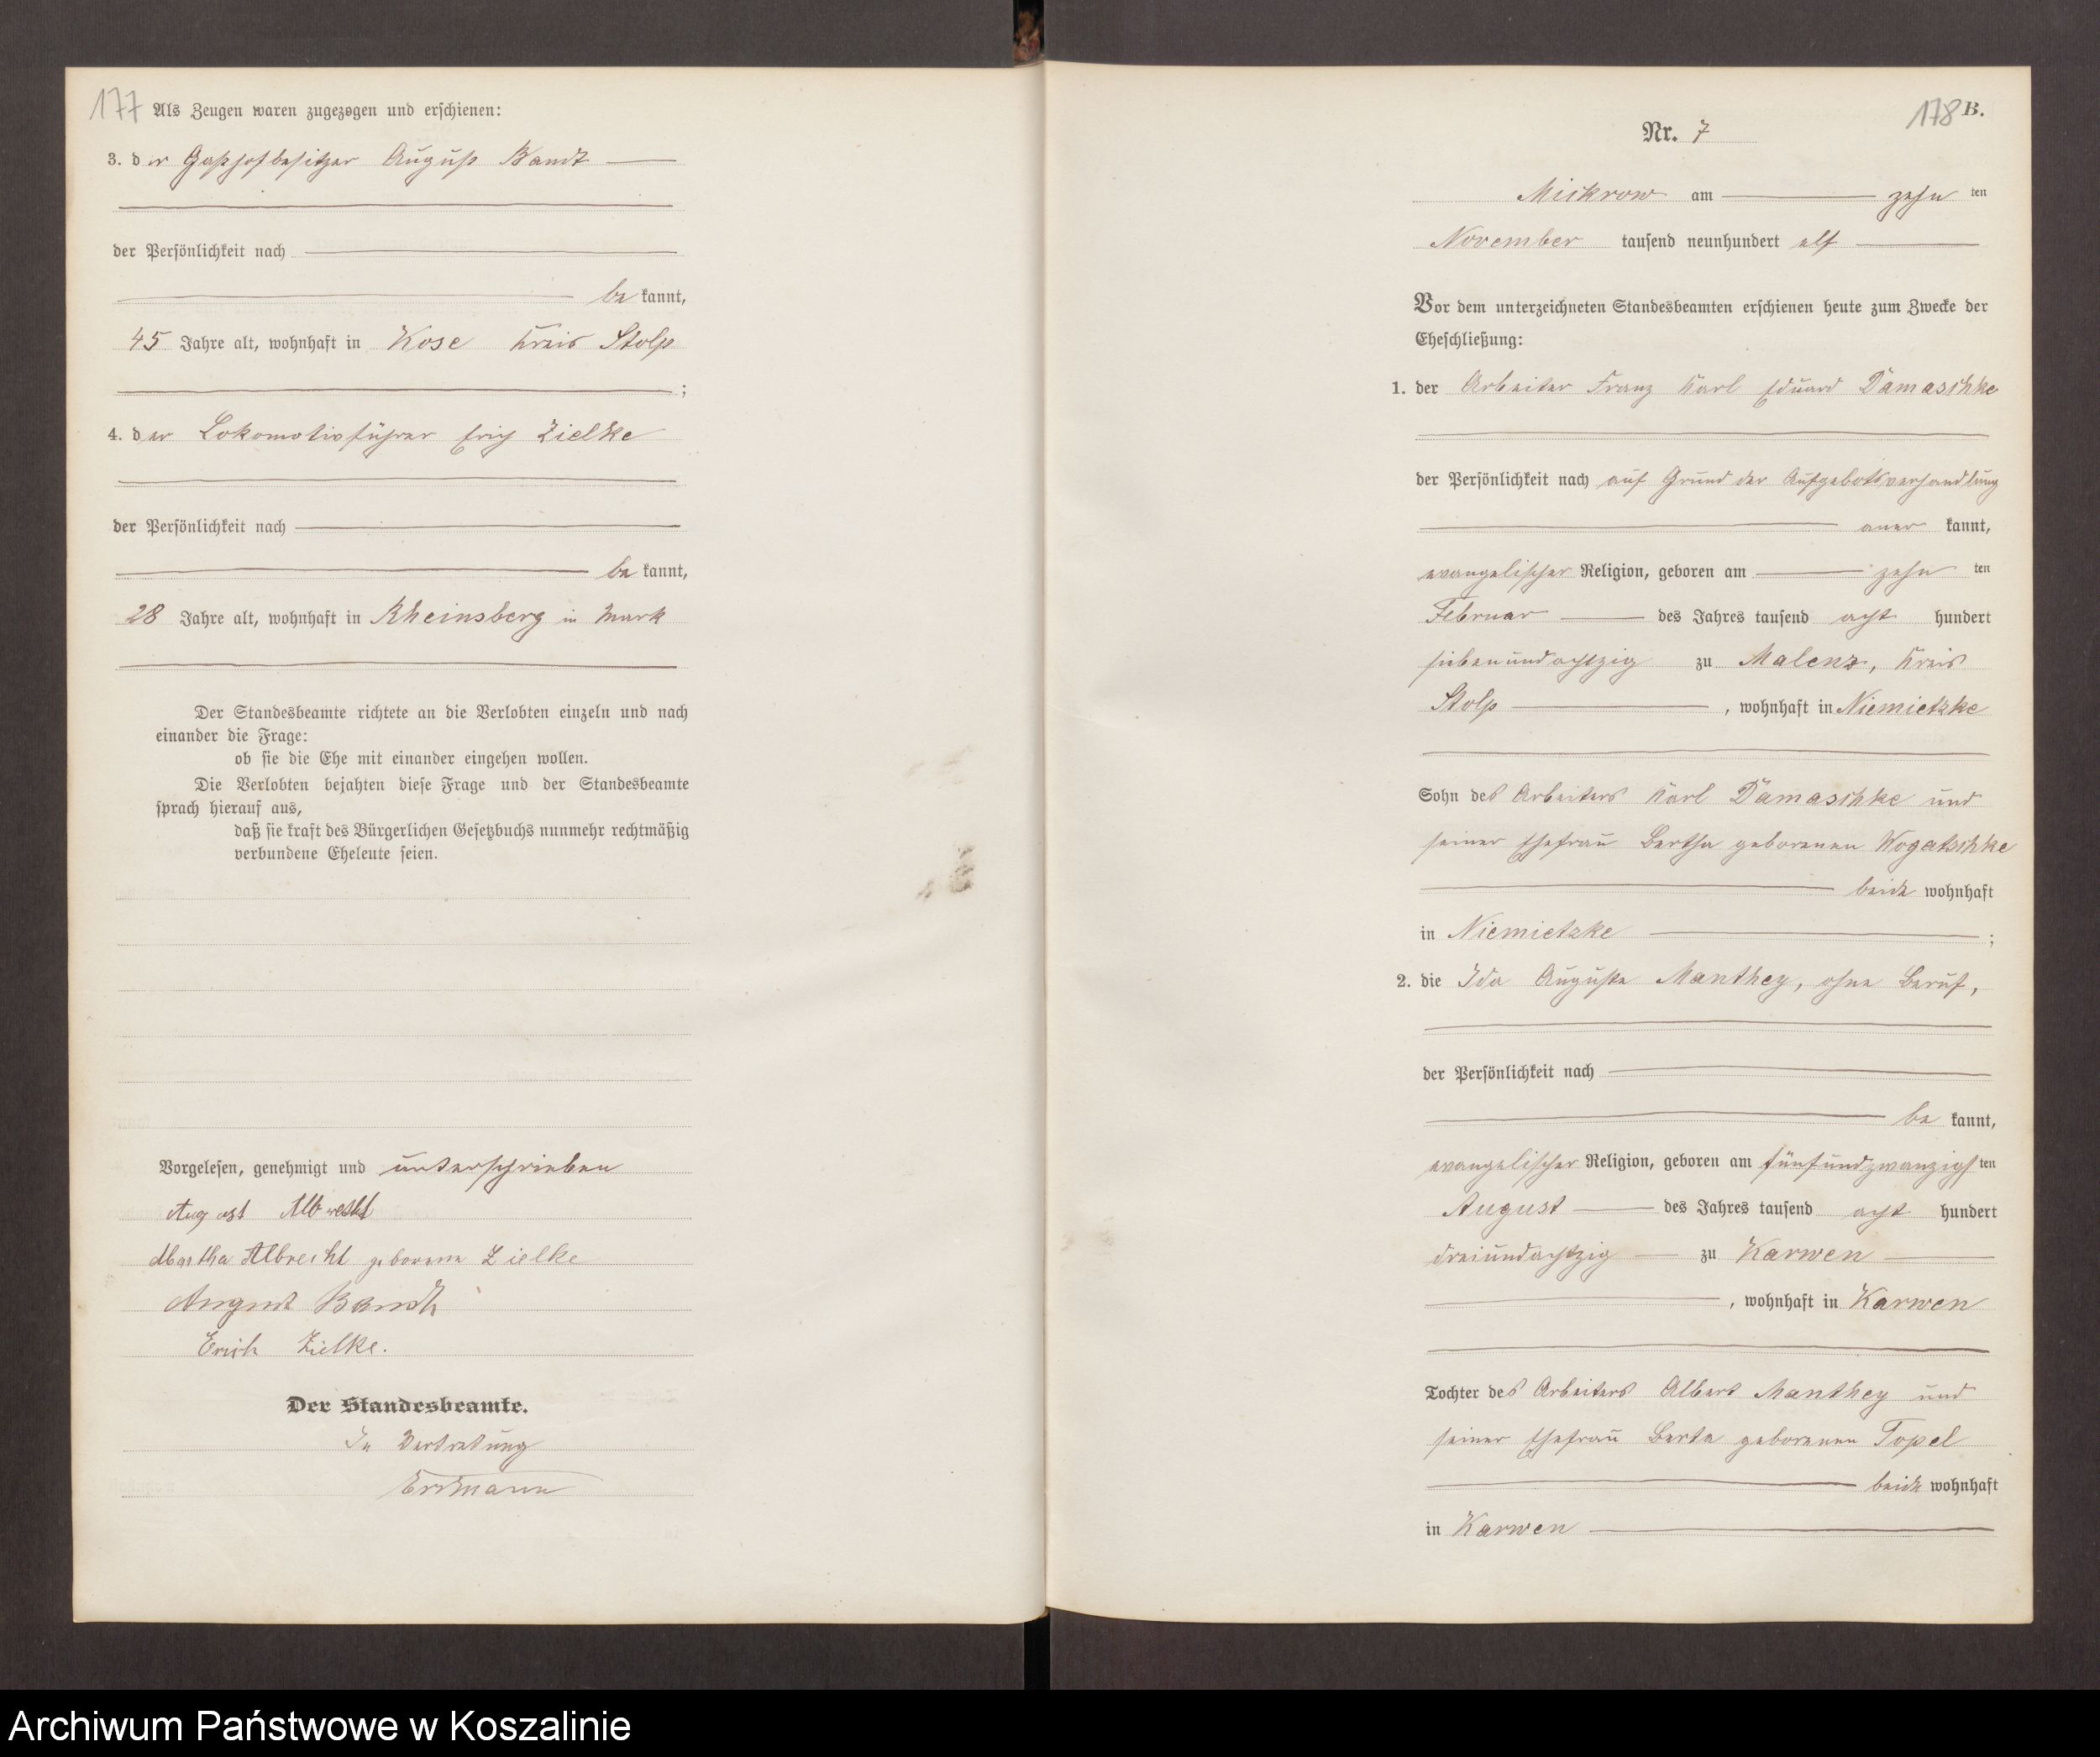 177
Als Zeugen waren zugezogen und erschienen:
3. der Gasthofbesitzer August Bandt
der Persönlichkeit nach
be kannt,
45 Jahre alt, wohnhaft in Kose Kreis Stolp
;
4. der Lokomotivführer Erich Zielke
der Persönlichkeit nach
be kannt,
28 Jahre alt, wohnhaft in Rheinsberg in Mark
Der Standesbeamte richtete an die Verlobten einzeln und nach
einander die Frage:
ob sie die Ehe mit einander eingehen wollen.
Die Verlobten bejahten diese Frage und der Standesbeamte
sprach hierauf aus,
daß sie kraft des Bürgerlichen Gesetzbuchs nunmehr rechtmäßig
verbundene Eheleute seien.
Vorgelesen, genehmigt und unterschrieben
August Albrecht
Martha Albrecht geborene Zielke
August Bandt
Erich Zielke.
Der Standesbeamte.
In Vertretung
Erdmann
178 B.
Nr. 7
Mickrow am zehn ten
November tausend neunhundert elf
Vor dem unterzeichneten Standesbeamten erschienen heute zum Zwecke der
Eheschließung:
1. der Arbeiter Franz Karl Eduard Damaschke
der Persönlichkeit nach auf Grund der Aufgebotsverhandlung
aner kannt,
evangelischer Religion, geboren am zehn ten
Februar des Jahres tausend acht hundert
siebenundachtzig zu Malenz, Kreis
Stolp , wohnhaft in Niemietzke
Sohn des Arbeiters Karl Damaschke und
seiner Ehefrau Bertha geborenen Wogatschke
beide wohnhaft
in Niemietzke ;
2. die Ida Auguste Manthey, ohne Beruf,
der Persönlichkeit nach
be kannt,
evangelischer Religion, geboren am fünfundzwanzigs ten
August des Jahres tausend acht hundert
dreiundachtzig zu Karwen
, wohnhaft in Karwen
Tochter des Arbeiters Albert Manthey und
seiner Ehefrau Berta geborenen Topel
beide wohnhaft
in Karwen
Archiwum Państwowe w Koszalinie